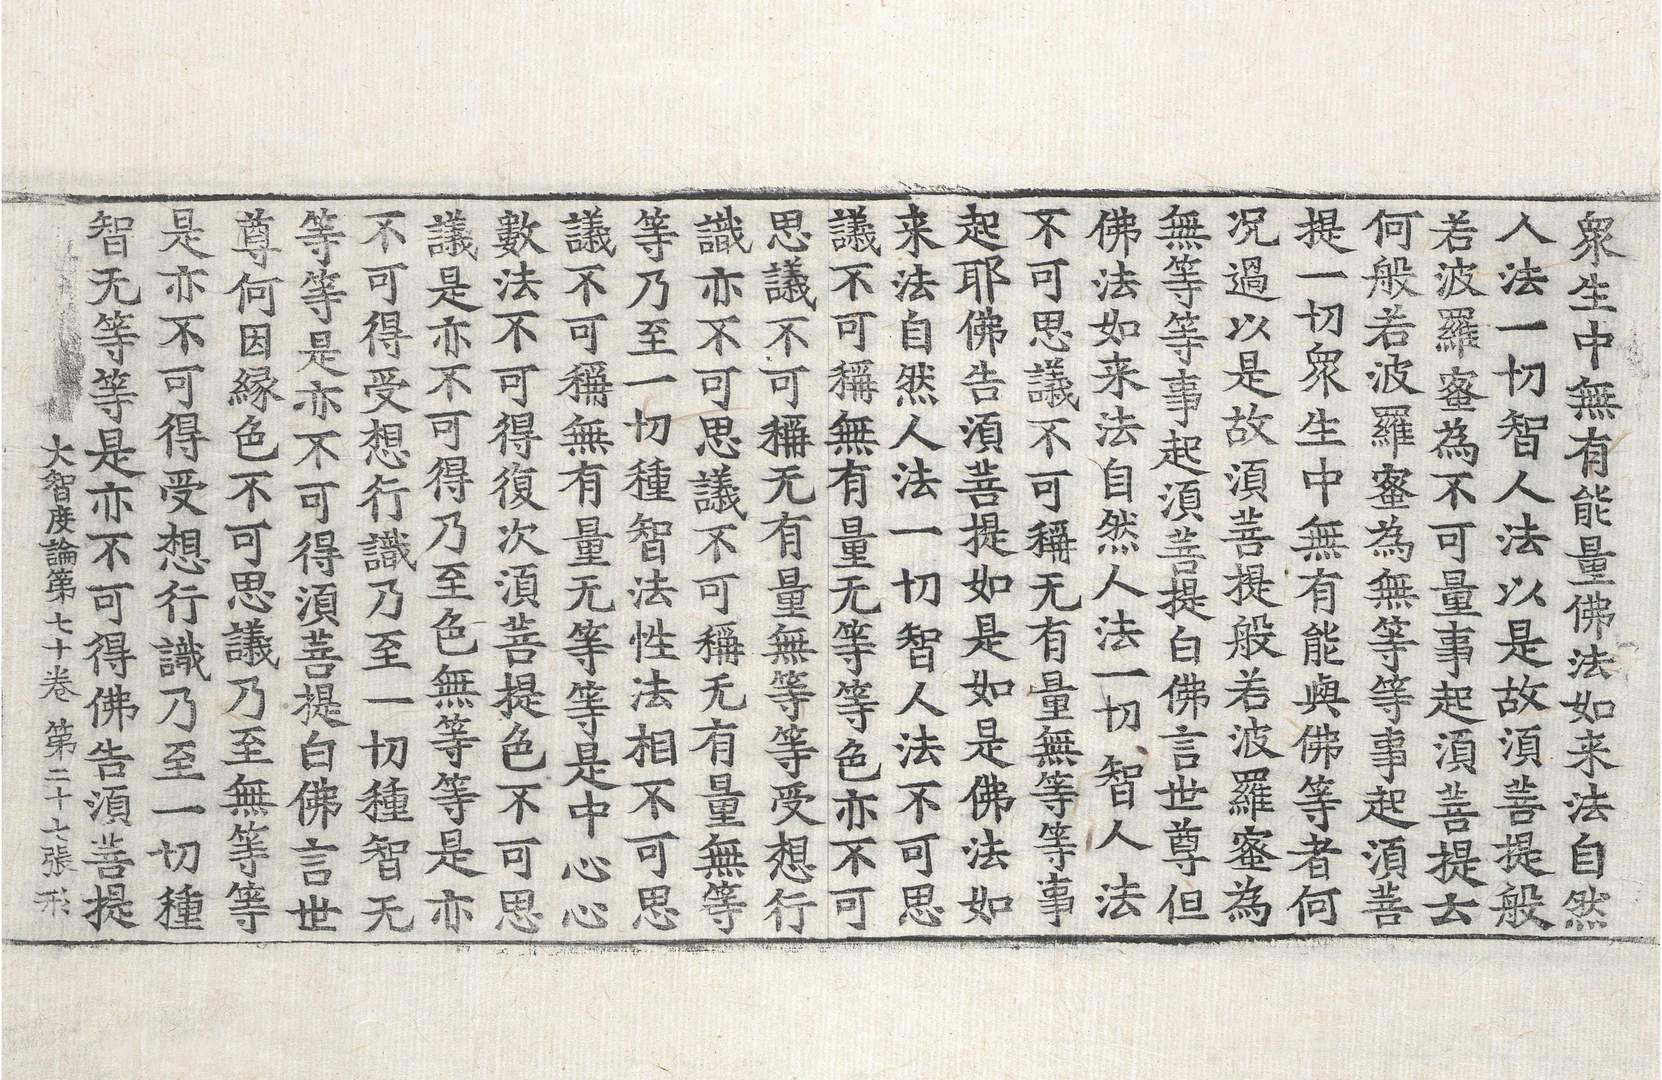 衆生中無有能量佛法如来法自然
人法一切智人法以是故湏菩提般
若波羅蜜為不可量事起湏菩提云
何般若波羅蜜為無等等事起湏菩
提一切衆生中無有能與佛等者何
况過以是故湏菩提般若波羅蜜為
無等等事起湏菩提白佛言世尊但
佛法如来法自然人法一切智人法
不可思議不可稱无有量無等等事
起耶佛告湏菩提如是如是佛法如
来法自然人法一切智人法不可思
議不可稱無有量无等等色亦不可
思議不可稱无有量無等等受想行
識亦不可思議不可稱无有量無等
等乃至一切種智法性法相不可思
議不可稱無有量无等等是中心心
數法不可得復次湏菩提色不可思
議是亦不可得乃至色無等等是亦
不可得受想行識乃至一切種智无
等等是亦不可得湏菩提白佛言世
尊何因緣色不可思議乃至無等等
是亦不可得受想行識乃至一切種
智无等等是亦不可得佛告湏菩提
大智度論第七十卷 第二十七張 形